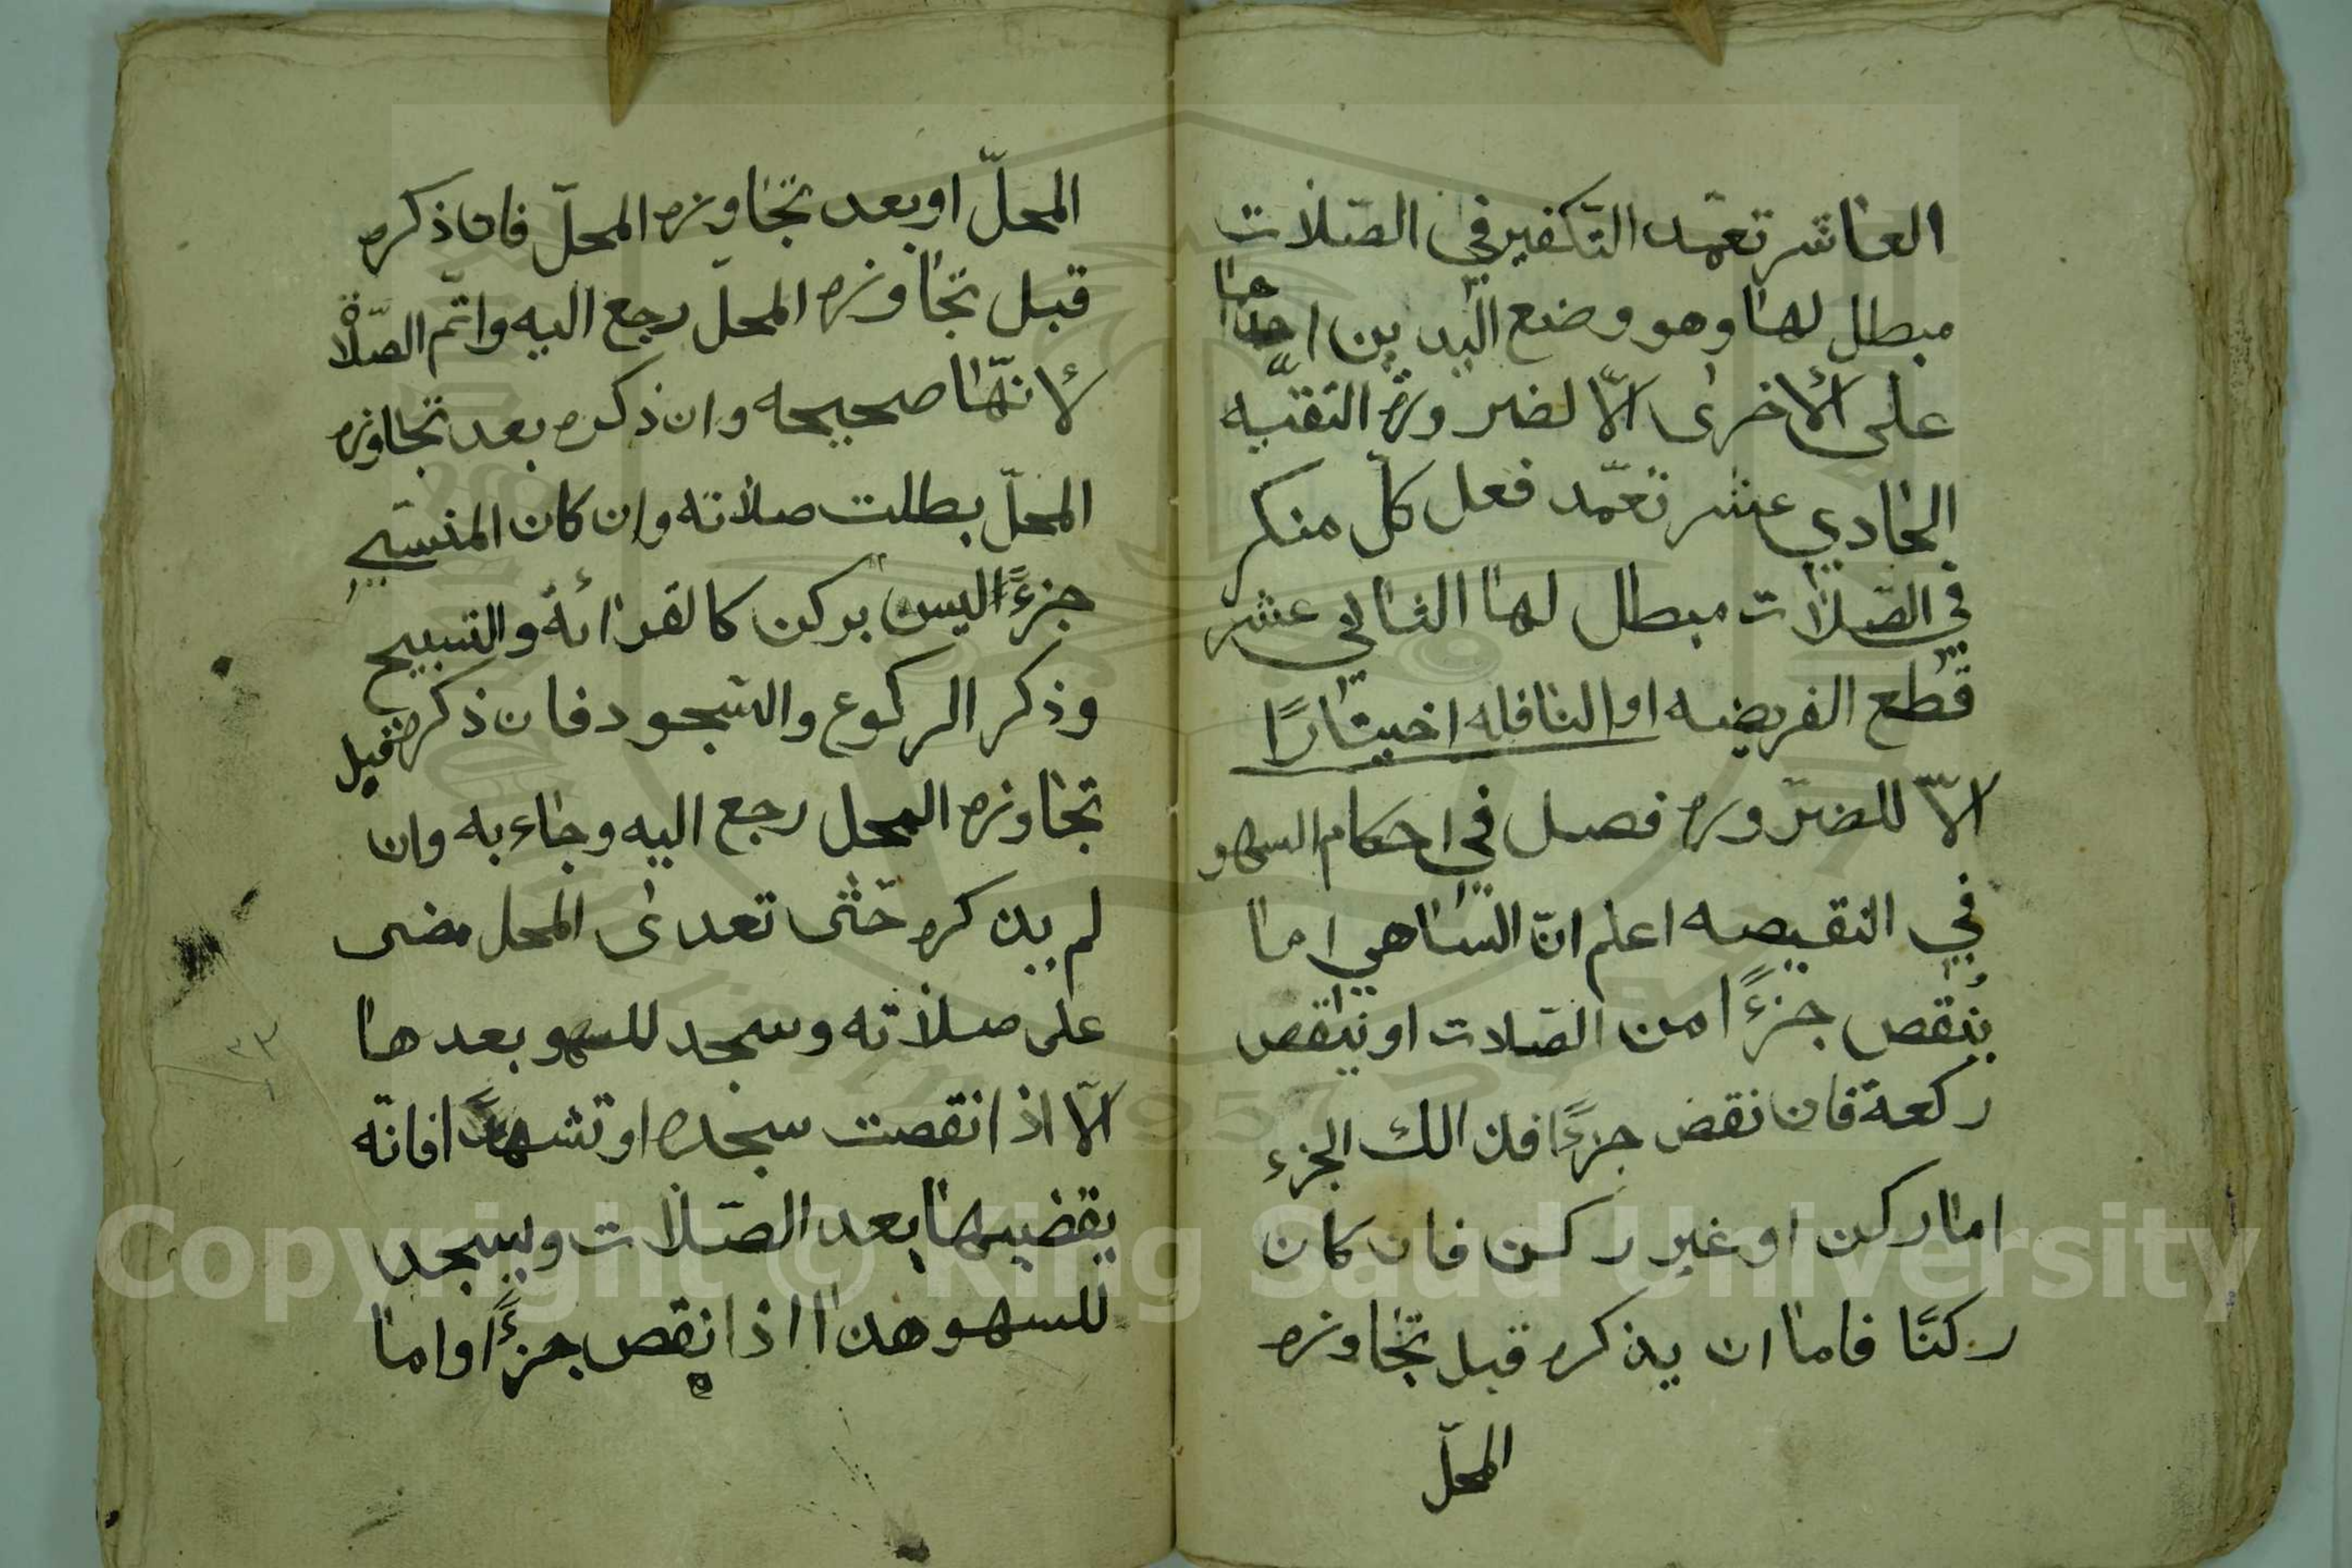 العاشر تعمّد التّكفير في الصّلات
مبطل لها وهو وضع اليدين احداها
على الأخرى الّا لضرورة التقيّه
الحادي عشر تعمّد فعل كلّ منكر
في الصّلات مبطل لها الثاني عشر
قطع الفريضه او النافله اختيارًا
الّا للضرّوره فصل في احكام السهو
في النقيصه اعلم انّ السّاهي اما
ينقص جزءًا من الصّلات او ينقص
ركعة فان نقص جزءًا فذالك الجزء
اما ركن او غير ركن فان كان
ركنًا فاما ان يذكره قبل تجاوزه
المحلّ
المحلّ او بعد تجاوزه المحلّ فان ذكره
قبل تجاوزه المحلّ رجع اليه واتّم الصّلاة
لأنّها صحيحه وان ذكره بعد تجاوزه
المحلّ بطلت صلاته وان كان المنسّي
جزءًا ليس بركن كالقرائة والتسبيح
وذكر الركوع والسّجود فان ذكره قبل
تجاوزه المحل رجع اليه وجاء به وان
لم يذكره حتّى تعدى المحل مضى
على صلاته وسجد للسهو بعدها
الّا اذا نقصت سجده او تشهدًا فانّه
يقضيها بعد الصّلات ويسجد
للسهو هذا اذا نقص جزءًا واما
٢٣
Copyright © King Saud University
1957